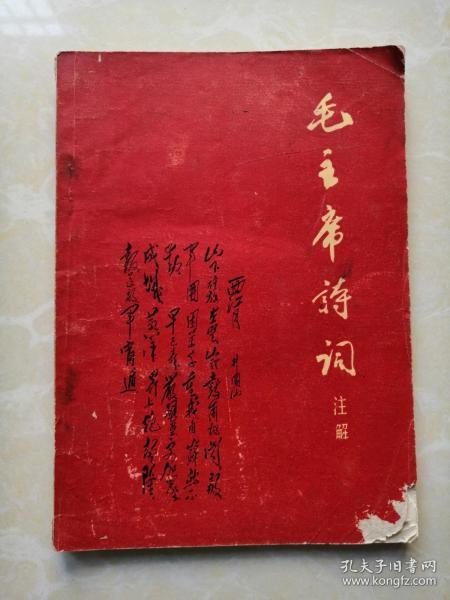 毛主席詩詞
注解
西江月 井岡山
山下旌旗在望山头鼓角相闻敌
軍圍困万千重我自巋然不
動 早已森嚴壁壘更加众志
成城 黄洋界上炮聲隆
報道敌軍宵遁
孔夫子旧书网
www.kongfz.com